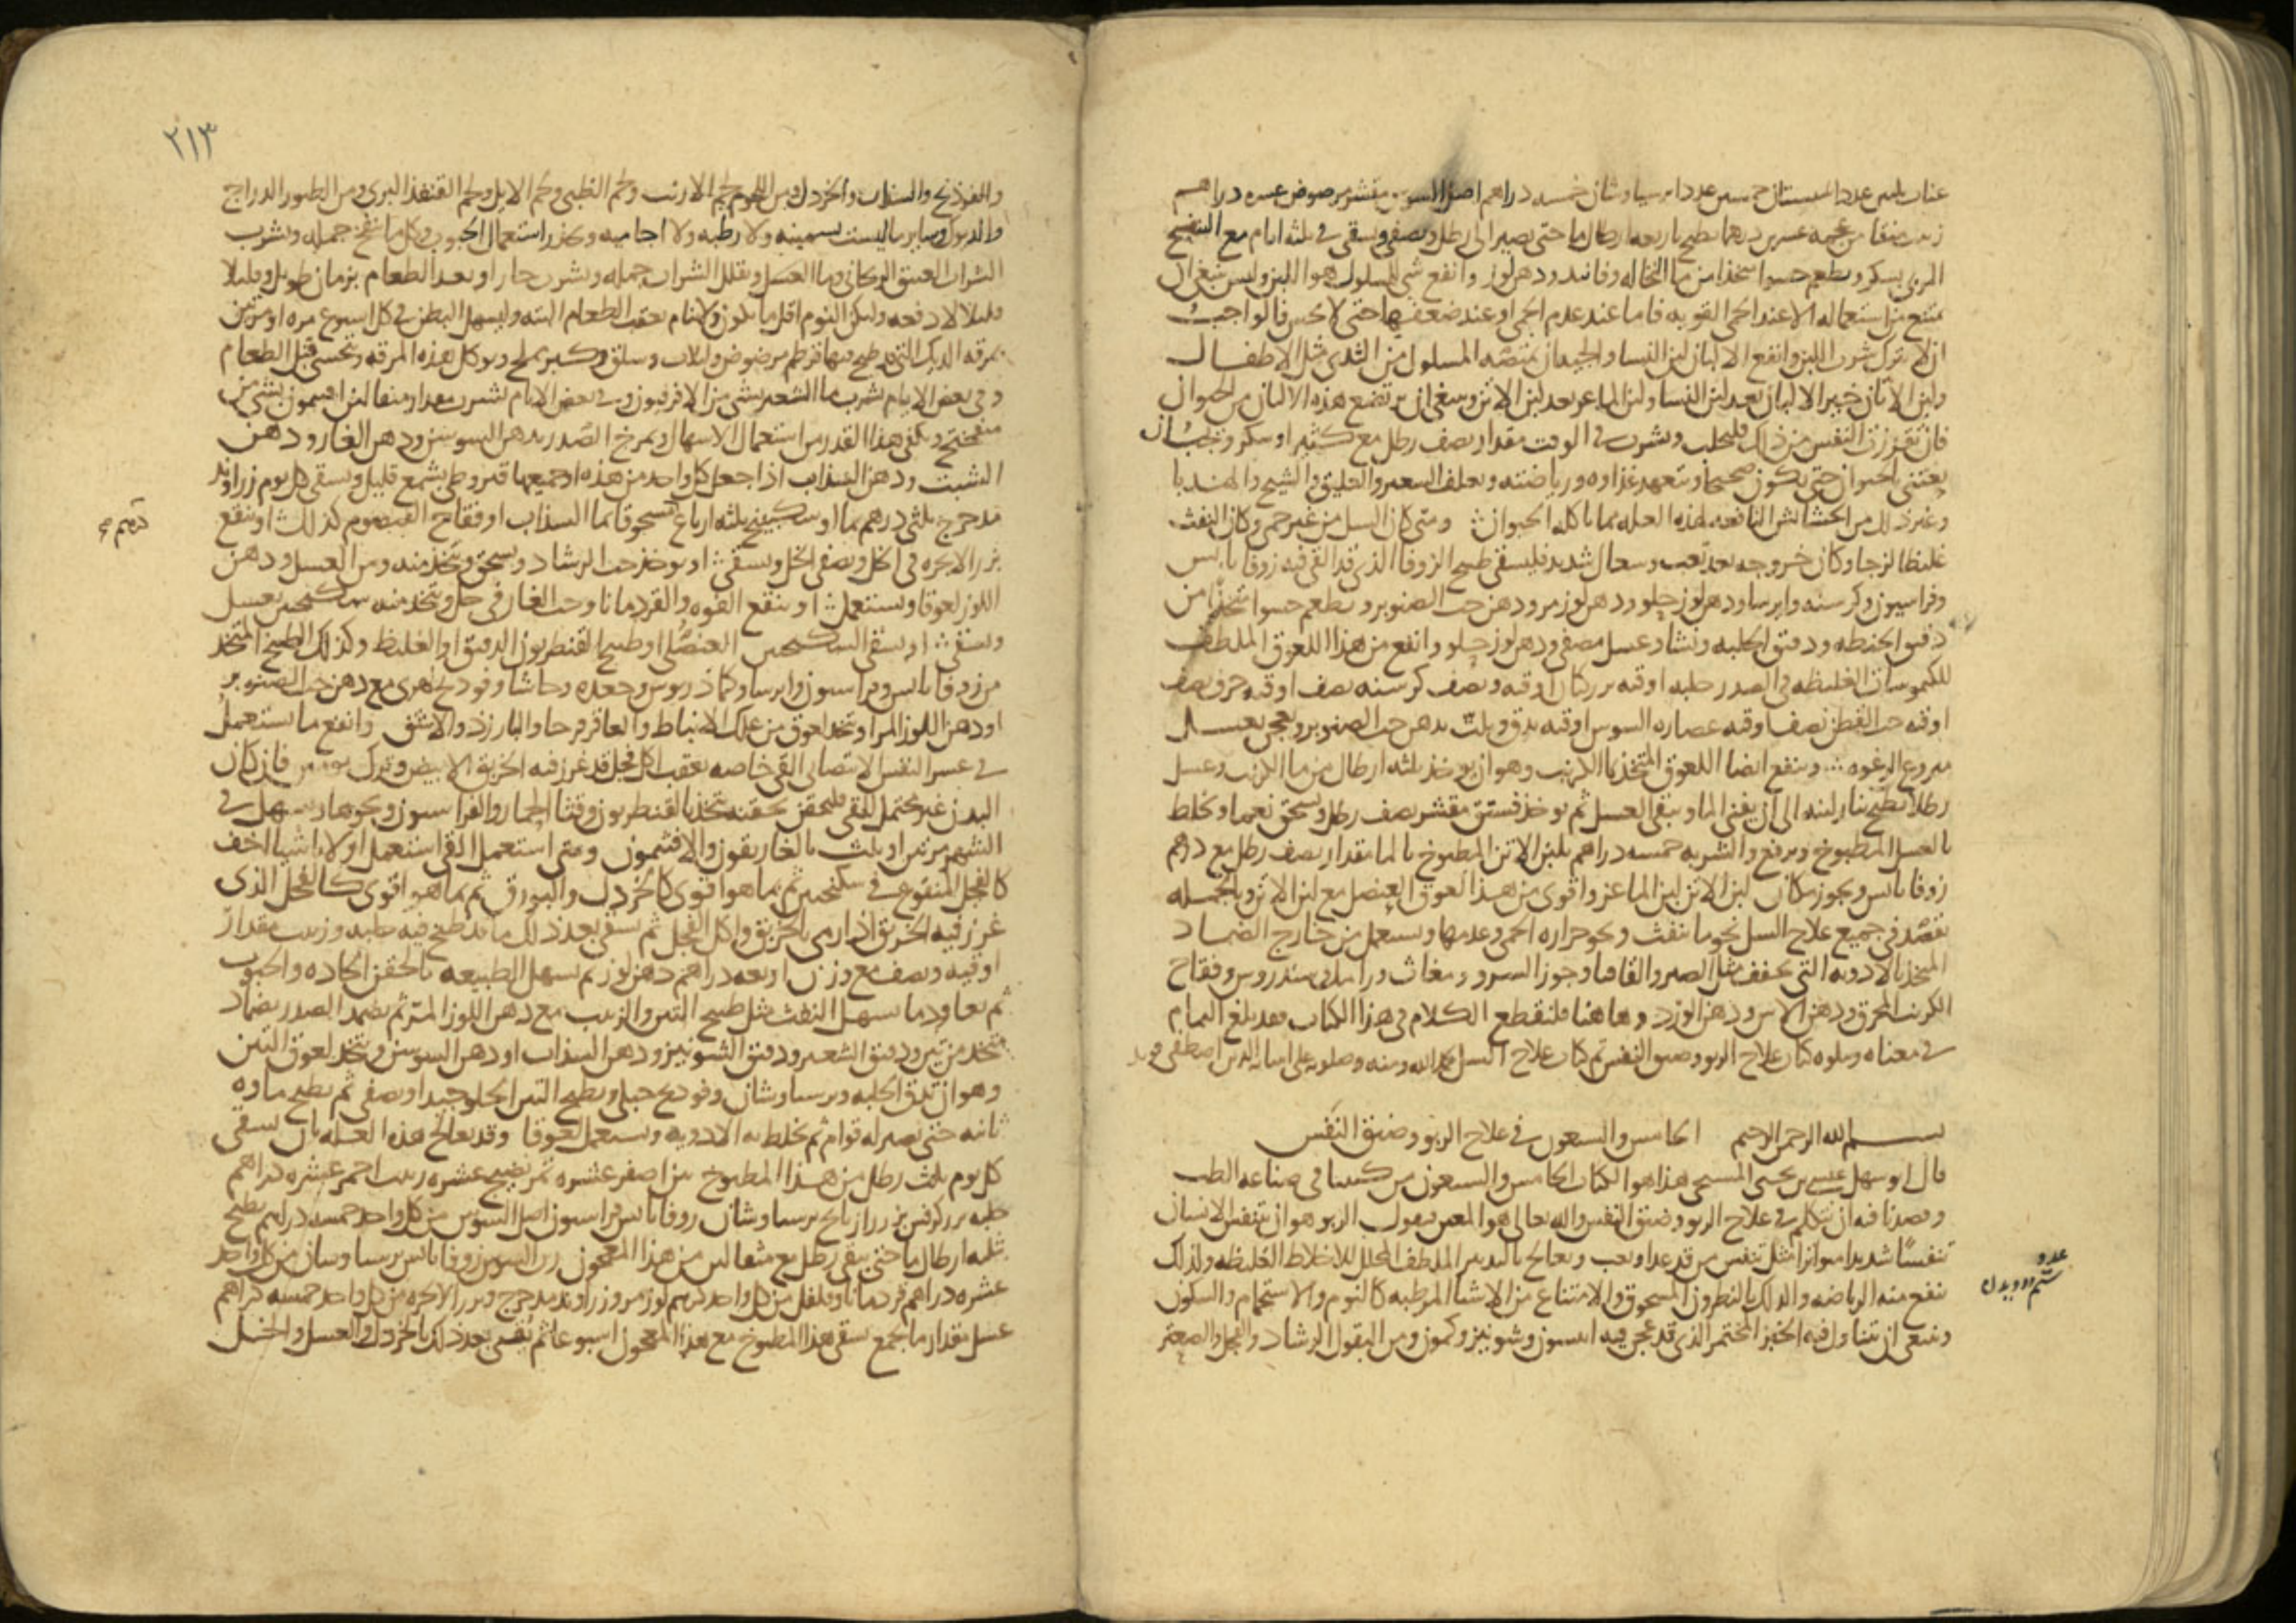 عناب ثلثين عددا سبستان خمسين عددا برسياوشان خمسه دراهم اصل السوس مقشر مرضوض عشره دراهم
زبيب منقا من عجمه عشرين درهما يطبخ باربعه ارطال ما حتى يصير الى رطل ويصفى ويسقى في ثلثه ايام مع البنفسج
المربى بسكر ويطعم حسوا متخذا من ما النخاله وفانيد ودهن لوز وانفع شي للمسلول هو اللبن وليس ينبغي ان
يمتنع من استعماله الا عند الحمى القويه فاما عند عدم الحمى او عند ضعفها حتى لا يحس فالواجب
ان لا يترك شرب اللبن وانفع الالبان لبن النسا والجيد ان يمتصه المسلول من الثدى مثل الاطفال
ولبن الاتان خير الالبان بعد لبن النسا ولبن الماعز بعد لبن الاتن وينبغي ان يرتضع هذه الالبان من الحيوان
فان تقززت النفس من ذلك فليحلب ويشرب في الوقت مقدار نصف رطل مع كثيرا او سكر ويجب ان
يعتنى بالحيوان حتى يكون صحيحا ويتعهد غذاوه ورياضته ويعلف الشعير والعليق والشيح والهندبا
وغير ذلك من الحشائش النافعه لهذه العله مما ياكله الحيوان ومتى كان السل من غير حمى وكان النفث
غليظا لزجا وكان خروجه بعد تعب وسعال شديد فليسقى طبيخ الزوفا الذي قد القى فيه زوفا يابس
وفراسيون وكرسنه وايرسا ودهن لوز حلو ودهن لوز مر ودهن حب الصنوبر ويطعم حسوا متخذا من
دقيق الحنطه ودقيق الحلبه ونشا وعسل مصفى ودهن لوز حلو وانفع من هذا اللعوق الملطف
للكيموسات الغليظه في الصدر حلبه اوقيه بزر كتان اوقيه ونصف كرسنه نصف اوقيه حرف نصف
اوقيه حب القطن نصف اوقيه عصاره السوس اوقيه يدق ويلت بدهن حب الصنوبر ويعجن بعسل
منزوع الرغوه وينفع ايضا اللعوق المتخذ بما الكرنب وهو ان يوخذ ثلثه ارطال من ما الكرنب وعسل
رطلا يطبخ بنار لينه الى ان يفنى الما ويبقى العسل ثم يوخذ فستق مقشر نصف رطل ويسحق نعما ويخلط
بالعسل المطبوخ ويرفع والشربه خمسه دراهم بلبن الاتن المطبوخ بالما مقدار نصف رطل مع درهم
زوفا يابس ويجوز مكان لبن الاتن لبن الماعز واقوى من هذا لعوق العنصل مع لبن الاتن وبالجمله
تقصد في جميع علاج السل نحو ما ينفث ونحو حراره الحمى وعدمها ويستعمل من خارج الضماد
المتخذ بالادويه التي تجفف مثل الصبر والقاقيا وجوز السرو ومغاث وراملك وسندروس وفقاح
الكرنب المحرق ودهن الاس ودهن الورد وهاهنا فلنقطع الكلام في هذا الكتاب فقد بلغ التمام
في معناه ويتلوه كتاب علاج الربو وضيق النفس تم كتاب علاج السل بحمد الله ومنه وصلوته على انبيائه الذين اصطفى
بسم الله الرحمن الرحيم الخامس والسبعون في علاج الربو وضيق النفس
قال ابو سهل عيسى بن يحيى المسيحي هذا هو الكتاب الخامس والسبعون من كتبنا في صناعه الطب
وقصدنا فيه ان نتكلم في علاج الربو وضيق النفس والله تعالى هو المعين فنقول الربو هو ان يتنفس الانسان
تنفسًا شديدا متواترا مثل تنفس من قد عدا وتعب ويعالج بالتدبير الملطف المحلل للاخلاط الغليظه ولذلك
ينفع منه الرياضه والدلك بالنطرون المسحوق والامتناع من الاشيا المرطبه كالنوم والاستحمام والسكون
وينبغي ان يتناول فيه الخبز المختمر الذي قد عجن فيه انيسون وشونيز وكمون ومن البقول الرشاد والفجل والصعتر
٢١٣
والفوذنج والسذاب والخردل ومن اللحوم لحم الارنب ولحم الظبى ولحم الايل ولحم القنفذ البرى ومن الطيور الدراج
وساير ما ليست بسمينه ولا رطبه ولا اجاميه ويحذر استعمال الحبوب وكل ما نفخ جمله ويشرب
الشراب العتيق الريحاني وما العسل ويقلل الشراب جمله ويشرب حارا وبعد الطعام بزمان طويل وقليلا
قليلا لا دفعه وليكن النوم اقل ما يكون ولا ينام بعقب الطعام البته وليسهل البطن في كل اسبوع مره او مرتين
بمرقه الديك التي قد طبخ فيها قرطم مرضوض ولبلاب وسلق وكبر مملح ويوكل هذه المرقه ويتحسى قبل الطعام
وفي بعض الايام يشرب ما الشعير بشي من الافربيون وفي بعض الايام يشرب مقدار مثقالين افتيمون بشي من
ميفختج ويكفى هذا القدر من استعمال الاسهال ويمرخ الصدر بدهن السوسن ودهن الغار ودهن
الشبت ودهن السذاب اذا جعل كل واحد من هذه او جميعها قيروطى بشمع قليل ويسقى كل يوم زراوند
مدحرج ثلثى درهم بما او سكبينج ثلثه ارباع مسحوقا بما السذاب او فقاح القيصوم كذلك او ينقع
بزر الانجره في الخل ويصفى الخل ويسقى او يوخذ حب الرشاد ويسحق ويتخذ منه ومن العسل ودهن
اللوز لعوقا ويستعمل او ينقع الفوه والقردمانا وحب الغار في خل ويتخذ منه سكنجبين بعسل
ويسقى او يسقى السكنجبين العنصلى او طبيخ القنطريون الدقيق او الغليظ وكذلك الطبيخ المتخذ
من زوفا يابس وفراسيون وايرسا وكمادريوس وجعده وحاشا وفوذنج نهرى مع دهن حب الصنوبر
او دهن اللوز المر او يتخذ لعوق من علك الانباط والعاقرقرحا والبارزد والاشق وانفع ما يستعمل
في عسر النفس الانتصابى القى خاصه بعقب اكل فجل قد غرز فيه الخربق الابيض وترك يومين فان كان
البدن غير محتمل للقى فليحقن بحقنه تتخذ بالقنطريون وقثا الحمار والفراسيون ونحوها ويسهل في
الشهر مرتين او ثلث بالغاريقون والافتيمون ومتى استعمل القى استعمل اولا باشيا اخف
كالفجل المنقوع في سكنجبين ثم بما هو اقوى كالخردل والبورق ثم بما هو اقوى كالفجل الذي
غرز فيه الخربق اذا رمى بالخربق واكل الفجل ثم يسقى بعد ذلك ما قد طبخ فيه حلبه وزبيب مقدار
اوقيه ونصف مع وزن اربعه دراهم دهن لوز ثم يسهل الطبيعه بالحقن الحاده والحبوب
ثم يعاود ما يسهل النفث مثل طبيخ التين والزبيب مع دهن اللوز المر ثم يضمد الصدر بضماد
متخذ من تين ودقيق الشعير ودقيق الشونيز ودهن السذاب او دهن السوسن ويتخذ لعوق التين
وهو ان تلق الحلبه وبرسياوشان وفوذنج جبلى ويطبخ التين الحلو جيدا ويصفى ثم يطبخ ماوه
ثانيه حتى يصير له قوام ثم يخلط به الادويه ويستعمل لعوقا وقد يعالج هذه العله بان يسقى
كل يوم ثلث رطل من هذا المطبوخ تين اصفر عشره تمر نضيج عشره زبيب احمر عشره دراهم
حلبه بزر كرفس بزر رازيانج برسياوشان زوفا يابس فراسيون اصل السوس من كل واحد خمسه دراهم يطبخ
بثلثه ارطال ما حتى يبقى رطل مع مثقالين من هذا المعجون رب السوس زوفا يابس برسياوشان من كل واحد
عشره دراهم قردمانا وفلفل من كل واحد درهم لوز مر وزراوند مدحرج وبزر الانجره من كل واحد خمسه دراهم
عسل مقدار ما يجمع يسقى هذا المطبوخ مع هذا المعجون اسبوعا ثم يقيى بعد ذلك بالخردل والعسل والخل